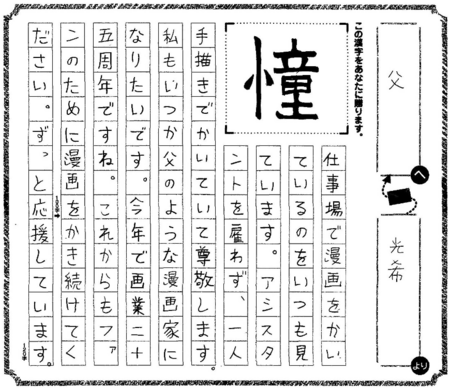 父へ
光希より
この漢字をあなたに贈ります。
憧
仕事場で漫画をかい
ているのをいつも見
ています。アシスタ
ントを雇わず、一人
手描きでかいていて尊敬します。
私もいつか父のような漫画家に
なりたいです。今年で画業二十
五周年ですね。これからもファ
ンのために漫画をかき続けてく
100字
ださい。ずっと応援しています。
120字